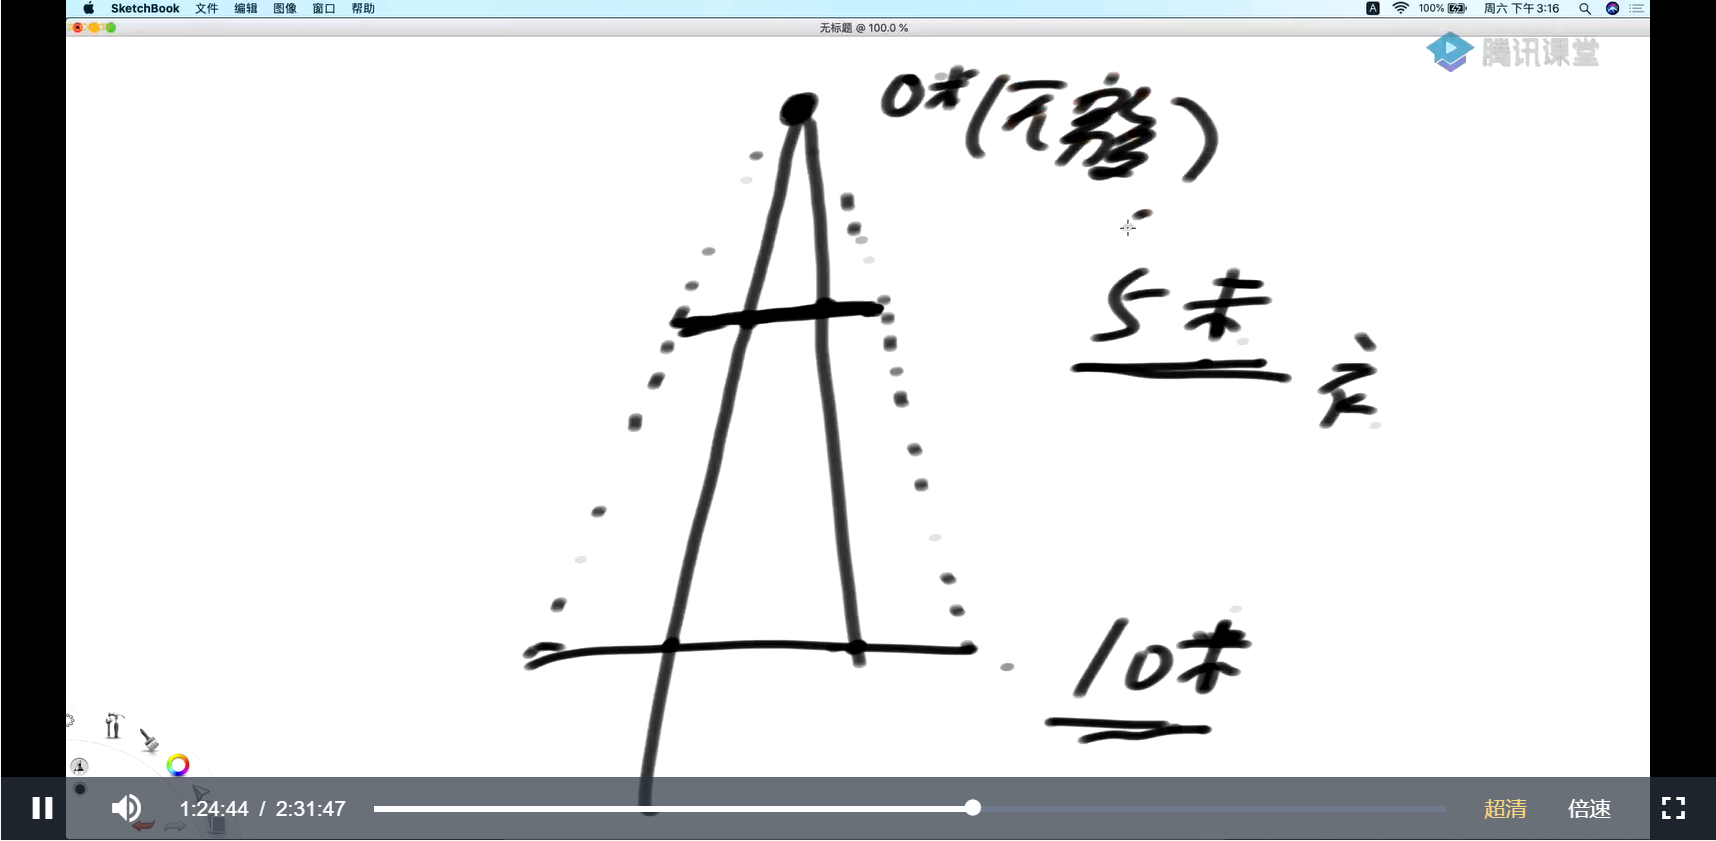 SketchBook 文件 编辑 图像 窗口 帮助
A 100% 周六 下午3:16
无标题 @ 100.0 %
腾讯课堂
0米(无
5米
10米
1:24:44 / 2:31:47 超清 倍速